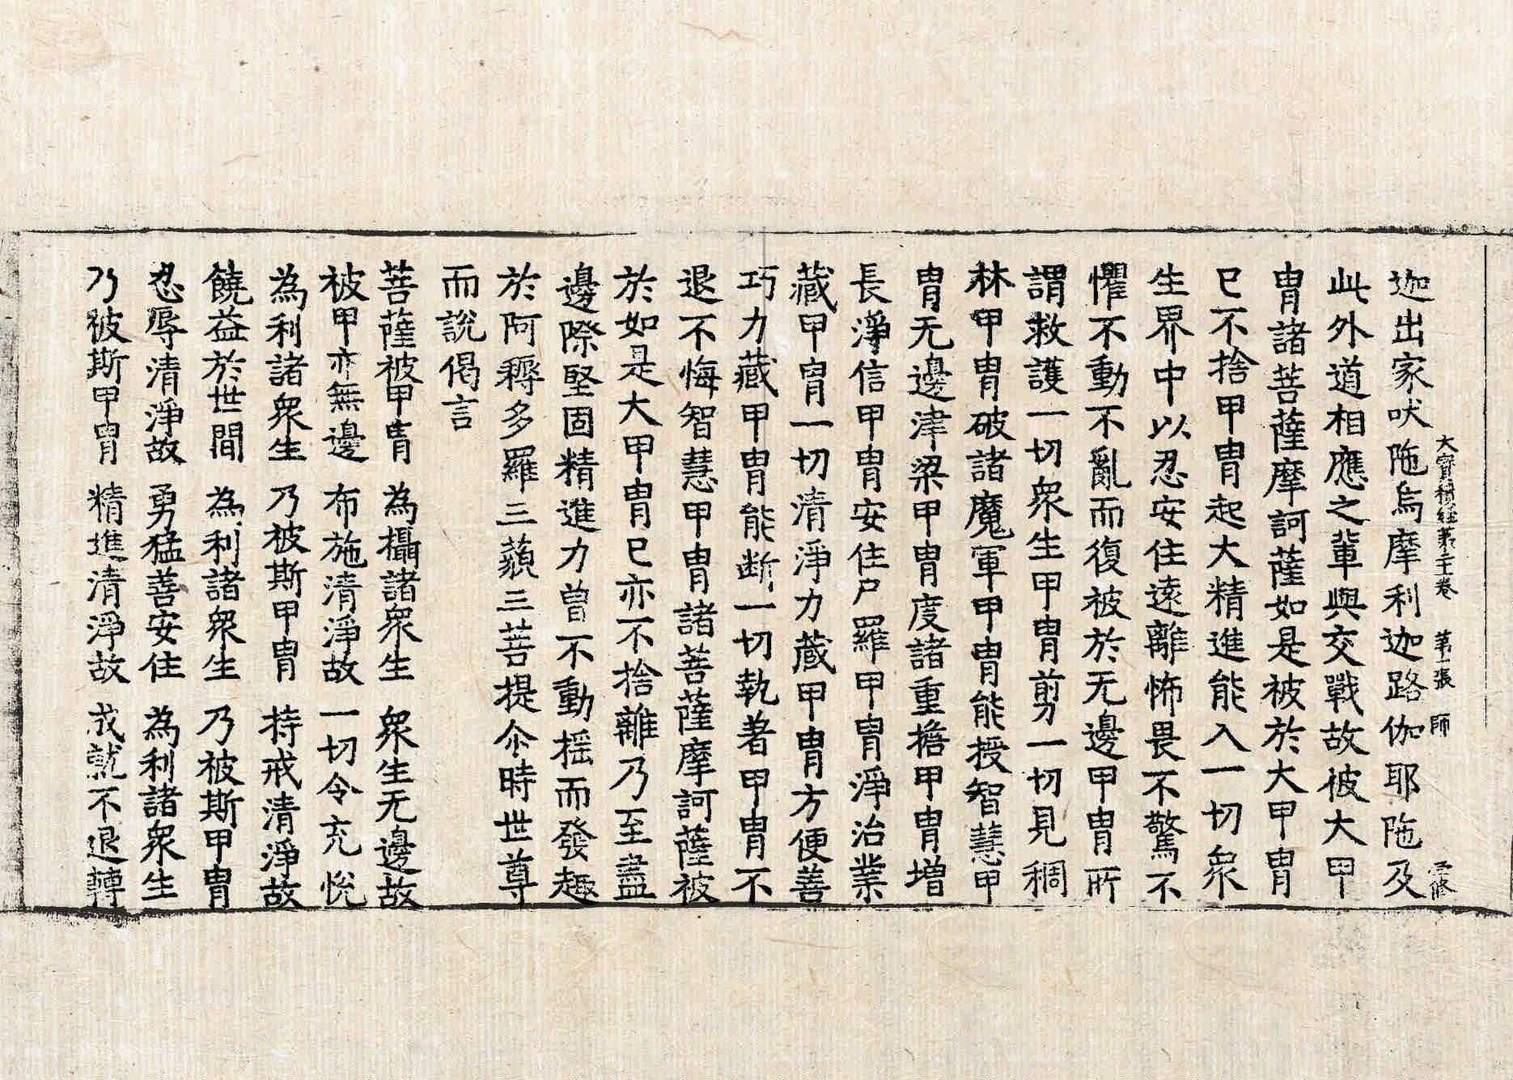 大寶積經第二十二卷 第一張 師
迦出家吠陁烏摩利迦路伽耶陁及
此外道相應之輩與交戰故被大甲
胄諸菩薩摩訶薩如是被於大甲胄
已不捨甲胄起大精進能入一切衆
生界中以忍安住遠離怖畏不驚不
懼不動不亂而復被於无邊甲胄所
謂救護一切衆生甲胄剪一切見稠
林甲胄破諸魔軍甲胄能授智慧甲
胄无邊津梁甲胄度諸重擔甲胄增
長淨信甲胄安住尸羅甲胄淨治業
藏甲胄一切清淨力藏甲胄方便善
巧力藏甲胄能断一切執著甲胄不
退不悔智慧甲胄諸菩薩摩訶薩被
於如是大甲胄已亦不捨離乃至盡
邊際堅固精進力曾不動揺而發趣
於阿耨多羅三藐三菩提尒時世尊
而說偈言
菩薩被甲胄 為攝諸衆生 衆生无邊故
被甲亦無邊 布施清淨故 一切令充悅
為利諸衆生 乃被斯甲胄 持戒清淨故
饒益於世間 為利諸衆生 乃被斯甲胄
忍辱清淨故 勇猛善安住 為利諸衆生
乃被斯甲胄 精進清淨故 成就不退轉